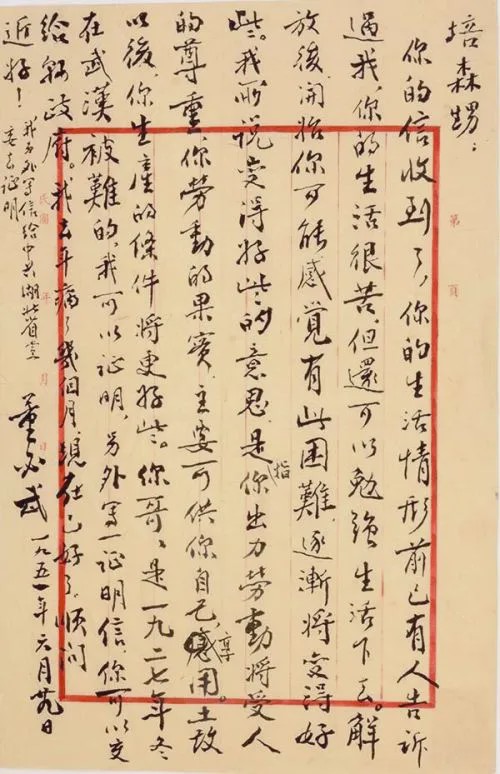 培森甥：
你的信收到了，你的生活情形前已有人告訴
過我，你的生活很苦，但還可以勉强生活下去。解
放後，開始你可能感覺有些困難，逐漸將变得好
些。我所说变得好些的意思，是指你出力劳動将受人
的尊重，你劳動的果實，主要可供你自己享用。土改
以後，你生產的條件将更好些。你哥哥是一九二七年冬
在武漢被難的，我可以证明，另外写一证明信，你可以交
给縣政府。我去年病了幾個月，現在已好了，順问
近好！
我另外写信给中共湖北省党
委去证明
董必武 一九五一年六月廿九日
第 頁
民國 年 月 日